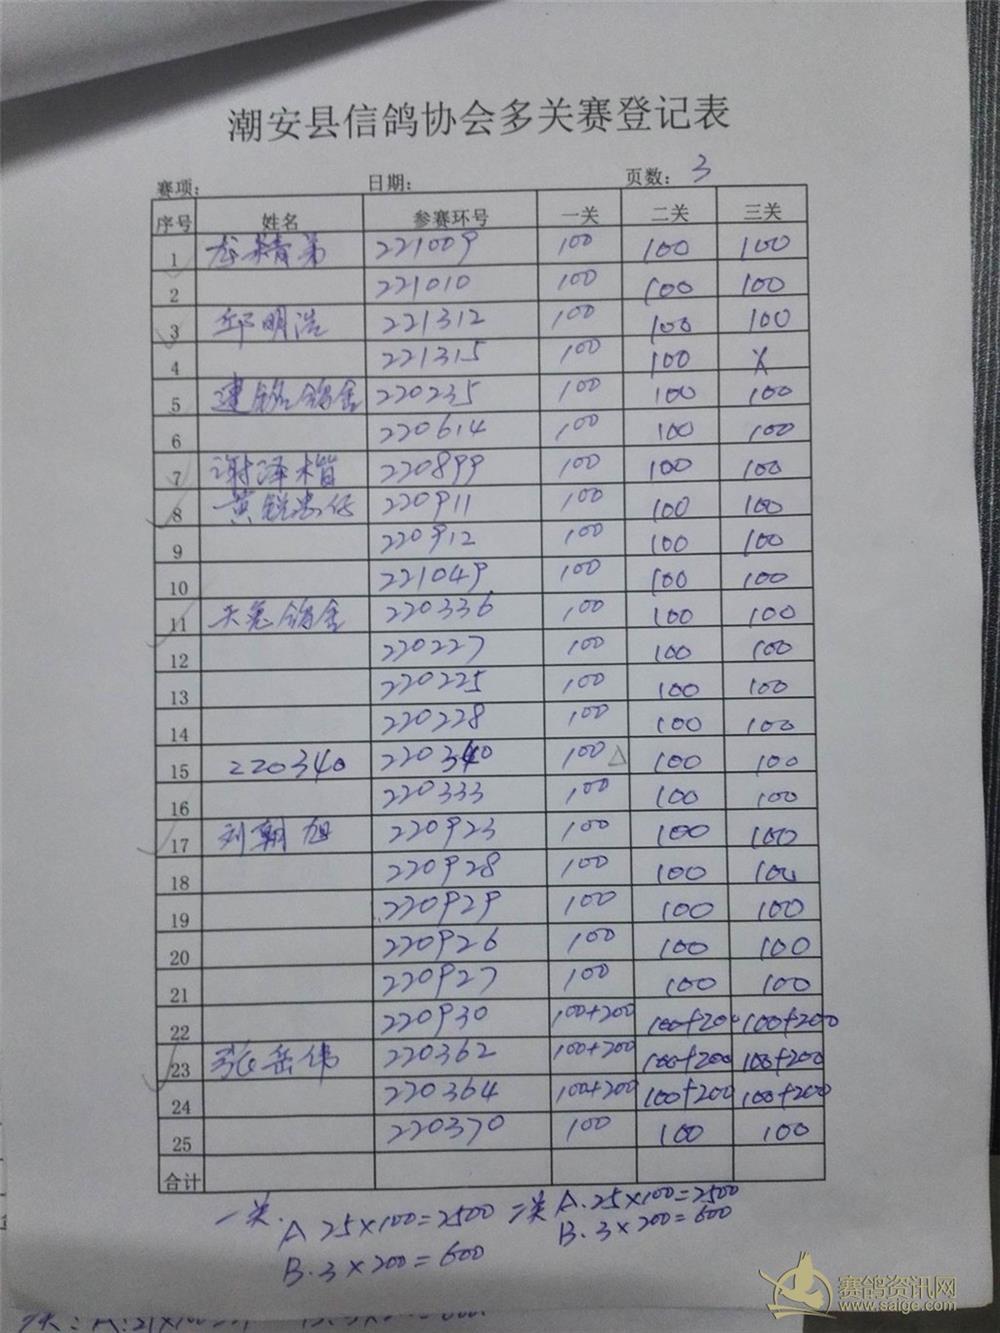 潮安县信鸽协会多关赛登记表
赛项: 日期: 页数: 3
序号 姓名 参赛环号 一关 二关 三关
1 221009 100 100 100
2 221010 100 100 100
3 邱明浩 221312 100 100 100
4 221315 100 100 X
5 建铭鸽舍 220235 100 100 100
6 220614 100 100 100
7 谢泽楷 220899 100 100 100
8 黄锐 220911 100 100 100
9 220912 100 100 100
10 221049 100 100 100
11 鸽舍 220336 100 100 100
12 220227 100 100 100
13 220225 100 100 100
14 220228 100 100 100
15 220340 220340 100 △ 100 100
16 220333 100 100 100
17 刘朝旭 220923 100 100 100
18 220928 100 100 100
19 220929 100 100 100
20 220926 100 100 100
21 220927 100 100 100
22 220930 100+200 100+200 100+200
23 张岳伟 220362 100+200 100+200 100+200
24 220364 100+200 100+200 100+200
25 220370 100 100 100
合计
一关. A 25×100=2500 二关 A.25×100=2500
B.3×200=600 B.3×200=600
赛鸽资讯网
www.saige.com